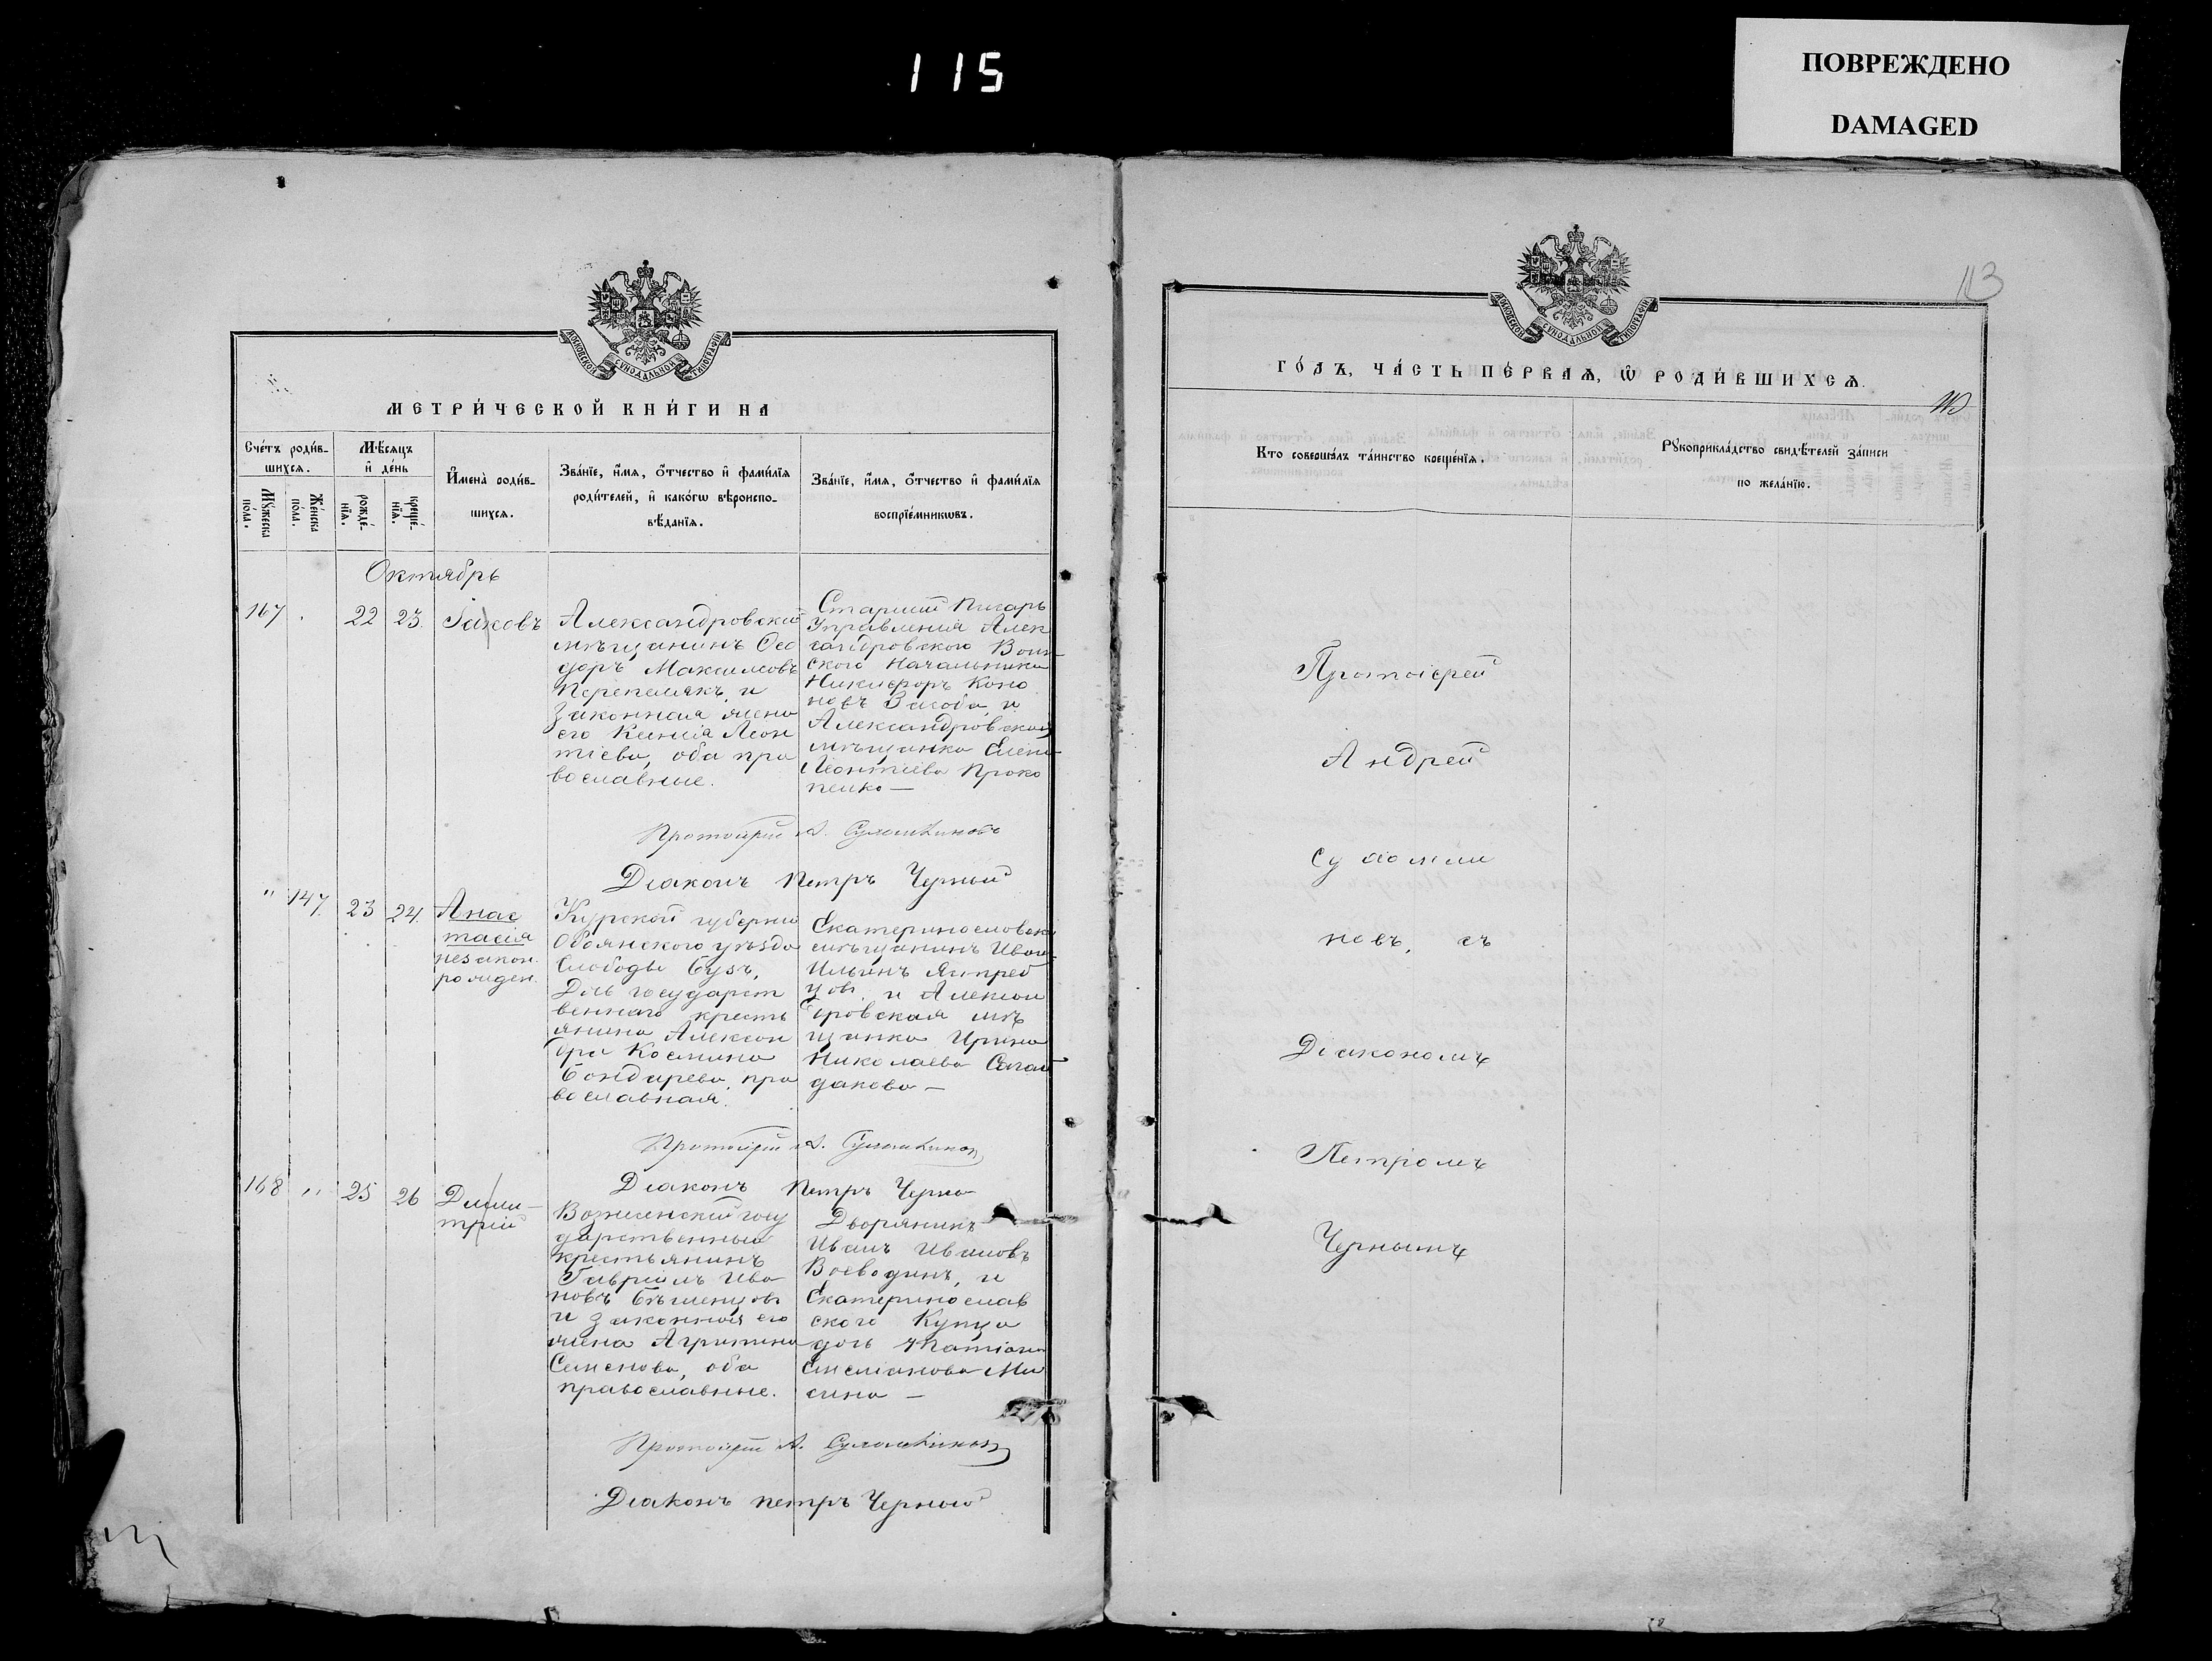 115
ПОВРЕЖДЕНО
DAMAGED
МОСКОВСКОЙ СѴНОДАЛЬНОЙ ТИПОГРАФІИ
МЕТРИ́ЧЕСКОЙ КНИ́ГИ НА
Сче́тъ роди́в-
шихсѧ.
Мꙋ́жеска по́ла.
Же́нска по́ла.
Мѣ́сѧцъ
и҆ де́нь
рожде́-
нїѧ.
креще́-
нїѧ.
И҆мена̀ роди́в-
шихсѧ.
Зва́нїе, и҆́мѧ, ѻ҆́тчество и҆ фами́лїѧ
роди́телей, и҆ како́гѡ вѣроиспо-
вѣ́данїѧ.
Зва́нїе, и҆́мѧ, ѻ҆́тчество и҆ фами́лїѧ
воспрїе́мникѡвъ.
Октябрь
167 22 23. Іаковъ
Александровскій
мѣщанинъ Ѳео
доръ Максимовъ
Перепелякъ и
законная жена
его Ксенія Леон
тіева, оба пра
вославные.
Старшій Писарь
Управленія Алек
сандровскаго Воин-
скаго Начальника
Никифоръ Коно
новъ и
Александровская
мѣщанка Елена
Леонтіева Проко
пенко —
Протоіерей А. Сулошкиновъ
Діаконъ Петръ Черный
" 147 23 24. Анас
тасія
незакон.
рожден.
Курской губерніи
Обоянского уѣзда
Слободы Бузъ,
Дочь государст
веннаго кресть
янина Алексан
дра Космина
Бондарева, пра
вославная.
Екатеринославскій
мѣщанинъ Иванъ
Ильинъ Ястреб
цовъ, и Алексан
дровская мѣ
щанка Ирина
Николаева Сагай
дакова —
Протоіерей А.
Діаконъ Петръ Черный
168 " 25 26 Дими-
трій
Вознесенскій госу
дарственный
крестьянинъ
Гавріилъ Ива
новъ
и законная его
жена Агрипина
Семенова, оба
православные.
Дворянинъ
Иванъ Ивановъ
Воеводинъ, и
Екатеринослав
скаго Купца
дочь
Ми
сина —
Протоіерей А.
Діаконъ Петръ Черный
113
МОСКОВСКОЙ СѴНОДАЛЬНОЙ ТИПОГРАФІИ
ГО́ДЪ, ЧА́СТЬ ПЕ́РВАѦ, Ѡ҆ РОДИ́ВШИХСѦ.
113
Кто соверша́лъ та́инство креще́нїѧ.
Рꙋкоприкла́дство свидѣ́телей за́писи
по жела́нїю.
Протоіерей
Андрей
новъ, съ
Діакономъ
Петромъ
Чернымъ